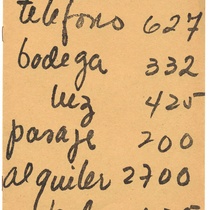 telefono 627
bodega 332
luz 425
pasaje 200
alquiler 2700